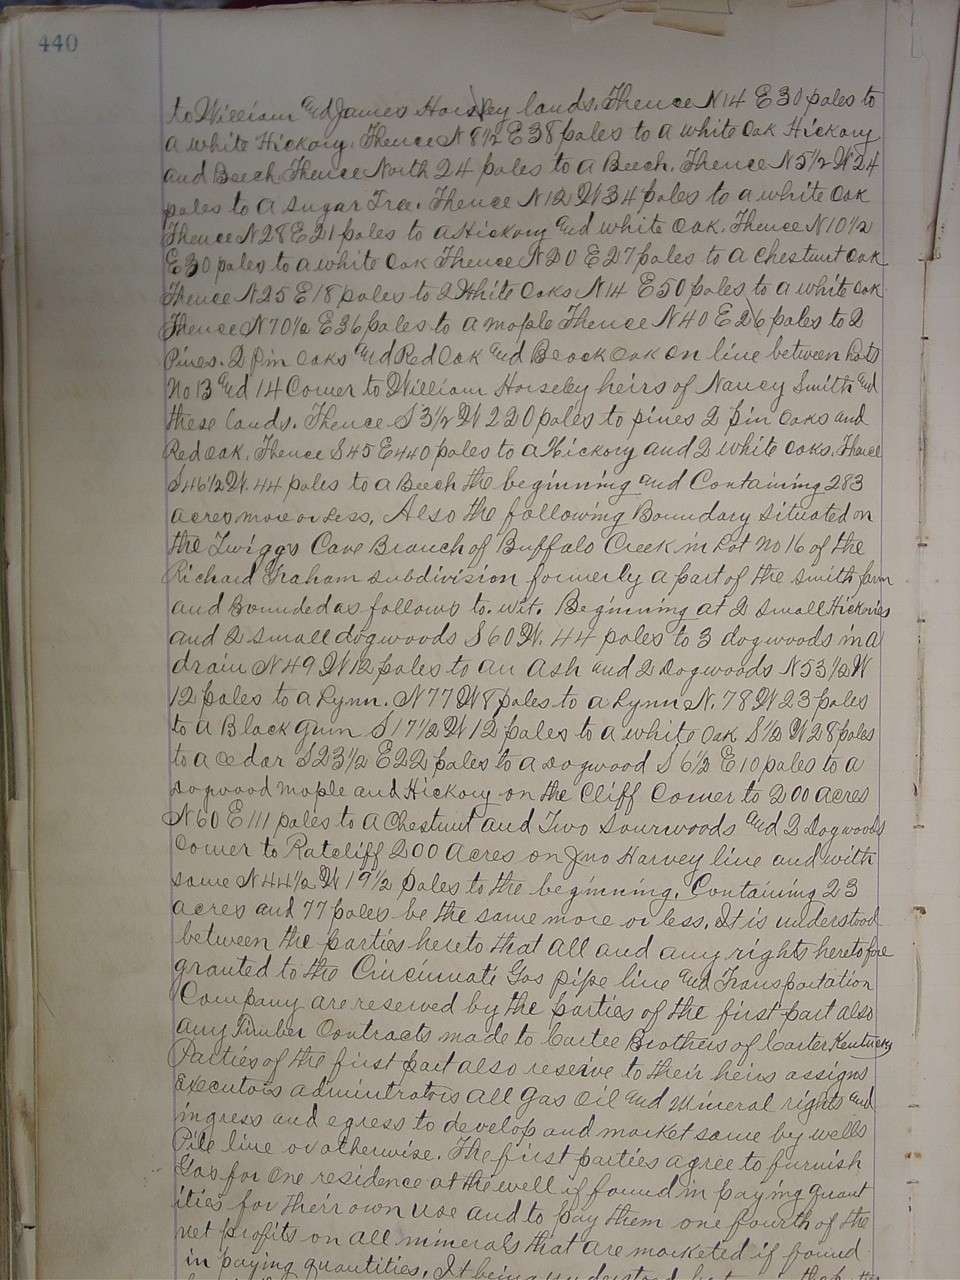 440
to William and James Horsley lands. Thence N14 E30 poles to
a white Hickory. Thence N 8½ E 38 poles to a white oak Hickory
and Beech Thence North 24 poles to a Beech. Thence N5½ W24
poles to a Sugar Tree. Thence N12 W34 poles to a white oak
Thence N28 E21 poles to a Hickory and white oak. Thence N10½
E30 poles to a white oak Thence N20 E27 poles to a chestnut oak
Thence N25 E18 poles to 2 White oaks N14 E50 poles to a white oak
Thence N70½ E36 poles to a maple Thence N40 E26 poles to 2
Pines. 2 pin oaks and Red oak and Beack oak on line between Lots
No 13 and 14 Corner to William Horseley heirs of Nancy Smith and
these lands. Thence S3½ W220 poles to pines 2 pin oaks and
Red oak. Thence S45 E440 poles to a Hickory and 2 white oaks. Thence
S46½ W. 44 poles to a Beech the beginning and Containing 283
acres more or less. Also the following Boundary situated on
the Twiggs Cave Branch of Buffalo Creek in Lot No 16 of the
Richard Graham subdivision formerly a part of the Smith farm
and Bounded as follows to.wit. Beginning at 2 small Hickories
and 2 small dogwoods S60 W. 44 poles to 3 dogwoods in a
drain N49 W12 poles to an ash and 2 Dogwoods N53½ W
12 poles to a Lynn. N77 W8 poles to a Lynn N.78 W23 poles
to a Black gum S17½ W12 poles to a white oak S½ W28 poles
to a cedar S23½ E22 poles to a Dogwood S6½ E10 poles to a
Dogwood maple and Hickory on the Cliff Corner to 200 acres
N60 E111 poles to a Chestnut and Two sourwoods and 2 Dogwoods
corner to Ratcliff 200 acres on Jno Harvey line and with
same N44½ W19½ poles to the beginning. Containing 23
acres and 77 poles be the same more or less. It is understood
between the parties hereto that all and any rights heretofore
granted to the Cincinnati Gas pipe line and Transportation
Company are reserved by the parties of the first part also
any Timber Contracts made to Cartee Brothers of Carter Kentucky
Parties of the first part also reserve to their heirs assigns
executors adminitrators all gas oil and mineral rights and
ingress and egress to develop and market same by wells
Pile line or otherwise. The first parties agree to furnish
Gas for one residence at the well if found in paying quant
ities for their own use and to pay them one fourth of the
net profits on all minerals that are marketed if found
in paying quantities. It being understood